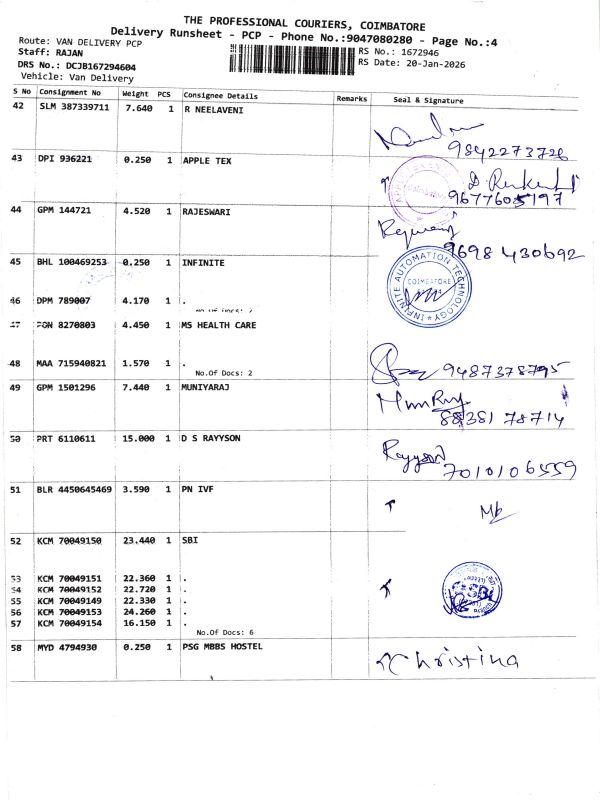 THE PROFESSIONAL COURIERS, COIMBATORE
Delivery Runsheet - PCP - Phone No.:9047080280 - Page No.:4
Route: VAN DELIVERY PCP
Staff: RAJAN
RS No.: 1672946
DRS No.: DCJB167294604
RS Date: 20-Jan-2026
Vehicle: Van Delivery
S No Consignment No Weight PCS Consignee Details Remarks Seal & Signature
42 SLM 387339711 7.640 1 R NEELAVENI
9842273728
43 DPI 936221 0.250 1 APPLE TEX
9677605197
44 GPM 144721 4.520 1 RAJESWARI
9698 430692
45 BHL 100469253 0.250 1 INFINITE
INFINITE AUTOMATION TECHNOLOGY
COIMBATORE
46 DPM 789007 4.170 1 .
No.Of Docs: 2
47 PON 8270803 4.450 1 MS HEALTH CARE
48 MAA 715940821 1.570 1 .
No.Of Docs: 2
9487378795
49 GPM 1501296 7.440 1 MUNIYARAJ
88381 78714
50 PRT 6110611 15.000 1 D S RAYYSON
Rayyson
7010106559
51 BLR 4450645469 3.590 1 PN IVF
52 KCM 70049150 23.440 1 SBI
53 KCM 70049151 22.360 1 .
54 KCM 70049152 22.720 1 .
55 KCM 70049149 22.330 1 .
56 KCM 70049153 24.260 1 .
57 KCM 70049154 16.150 1 .
No.Of Docs: 6
SBI
58 MYD 4794930 0.250 1 PSG MBBS HOSTEL
Christina